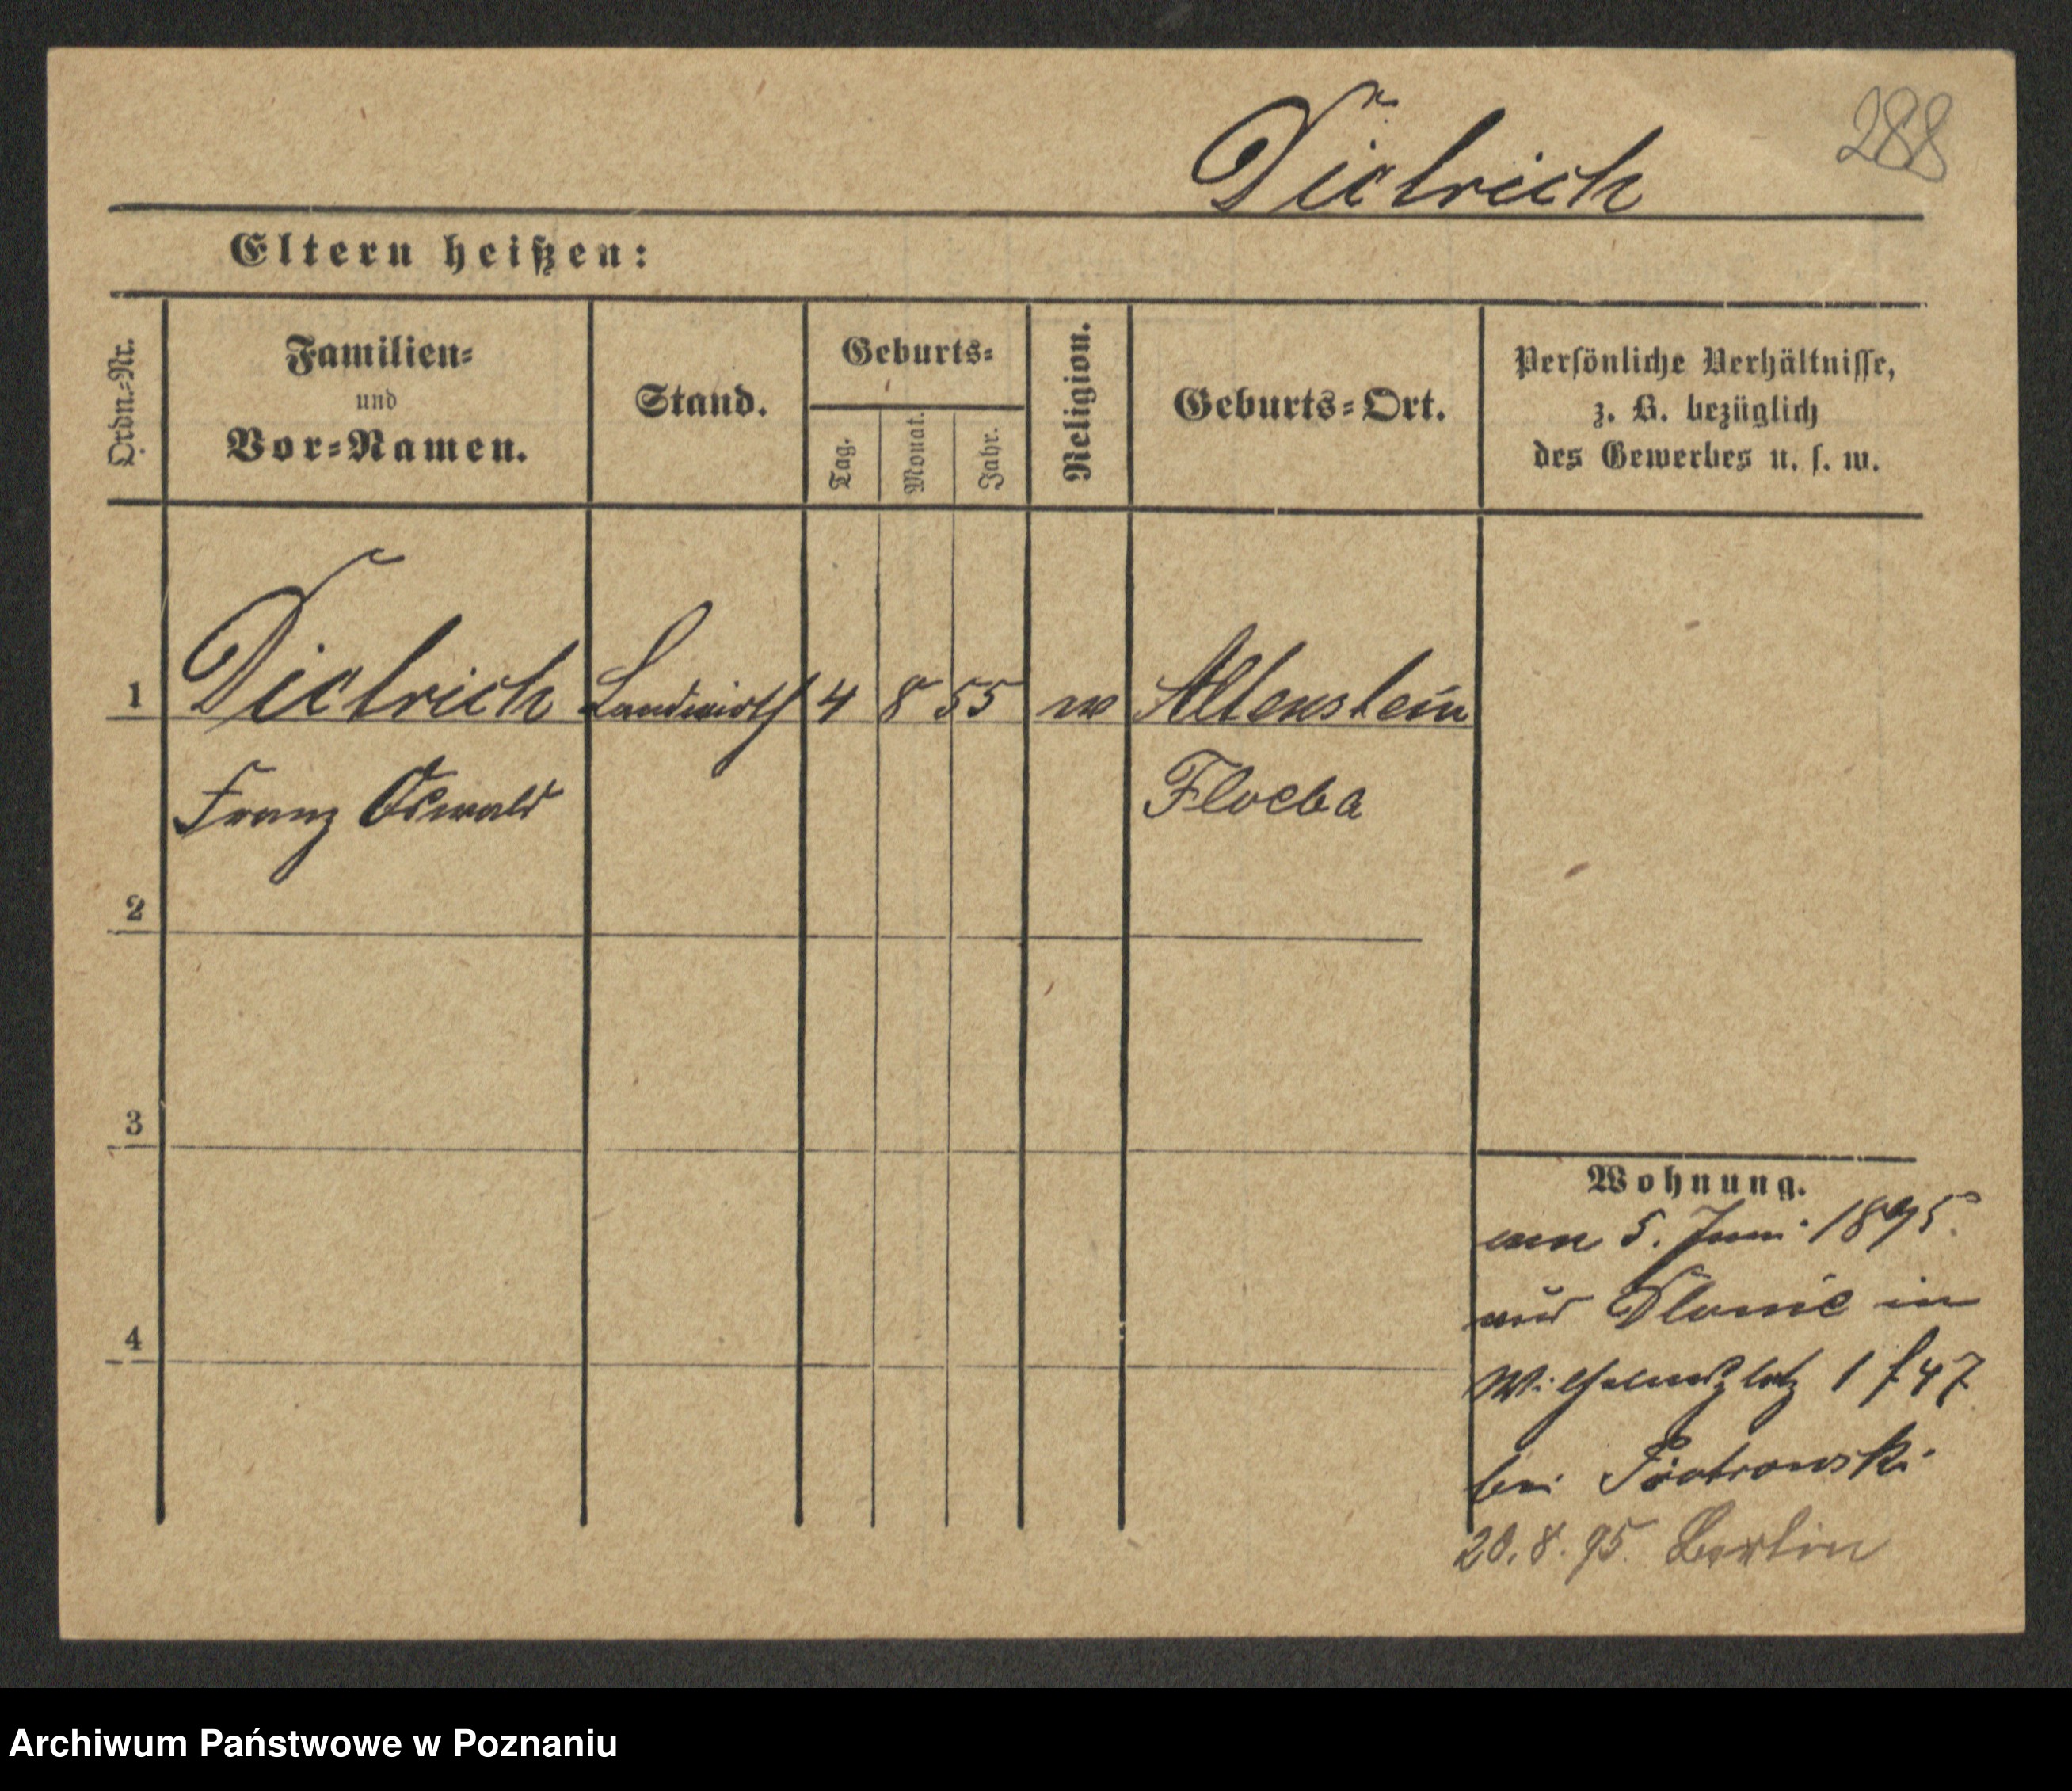 288
Dietrich
Eltern heißen:
Ordn.-Nr.
Familien-
und
Vor-Namen.
Stand.
Geburts-
Tag.
Monat.
Jahr.
Religion.
Geburts-Ort.
Persönliche Verhältnisse,
z. B. bezüglich
des Gewerbes u. s. w.
1 Dietrich Landwirth 4 8 55 Altenstein
Franz Oswald Floeba
2
3
4
Wohnung.
5. Juni 1895
aus in
Wilhelmsplatz 1 747
bei Piotrowski
20.8.95. Berlin
Archiwum Państwowe w Poznaniu